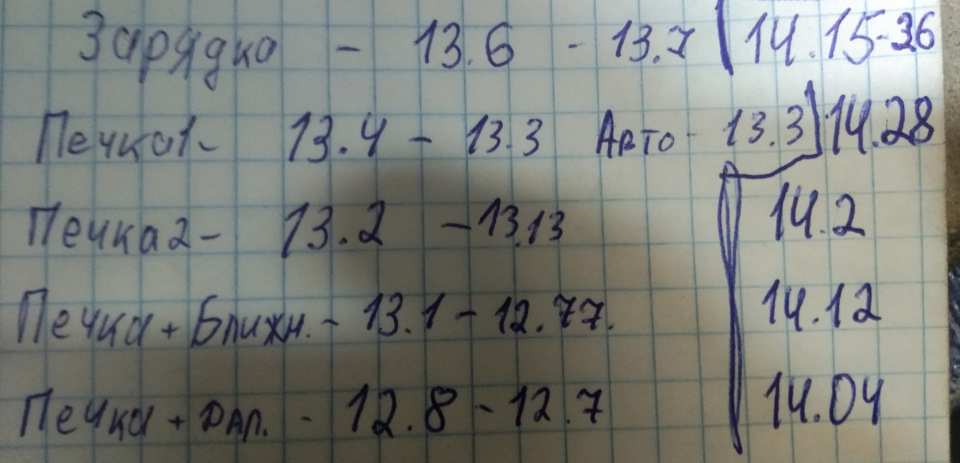 Зарядка - 13.6 - 13.7 14.15-26
Печка1- 13.4 - 13.3 Авто - 13.3 14.28
Печка2- 13.2 - 13.13 14.2
Печка + Ближн. - 13.1 - 12.77. 14.12
Печка + дал. - 12.8 - 12.7 14.04